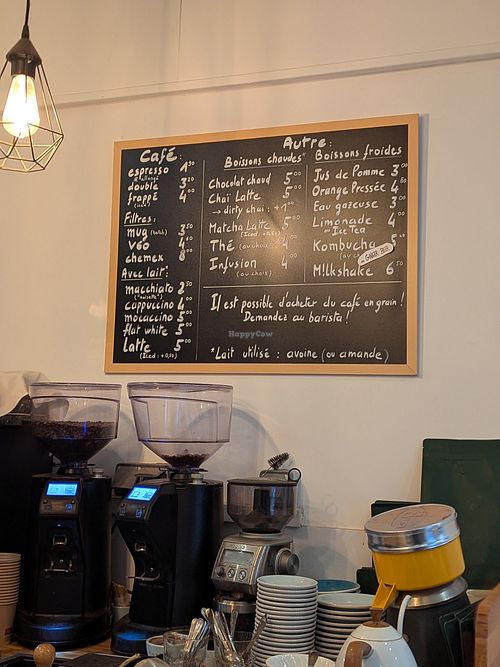 Café :
espresso 1⁹⁰
& allongé
double 3²⁰
frappé 4⁰⁰
Filtres :
mug 3⁵⁰
V60 4⁰⁰
chemex 8⁰⁰
Avec lait*:
macchiato 2⁵⁰
("noisette")
cappuccino 4⁰⁰
mocaccino 5⁰⁰
flat white 5⁰⁰
latte 5⁰⁰
(Iced : +0,50)
Autre :
Boissons chaudes*
Chocolat chaud 5⁰⁰
Chaï Latte 5⁰⁰
→ dirty chaï : +1⁰⁰
Matcha Latte 5⁰⁰
(Iced : +0,50)
Thé (au choix) 4⁰⁰
Infusion 4⁰⁰
(au choix)
Boissons froides
Jus de Pomme 3⁰⁰
Orange Pressée 4⁵⁰
Eau gazeuse 3⁰⁰
Limonade 4⁰⁰
~ Ice Tea
Kombucha 5
GINGER BEER
M!lkshake 6⁵⁰
Il est possible d'acheter du café en grain !
Demandez au barista !
HappyCow
*Lait utilisé : avoine (ou amande)